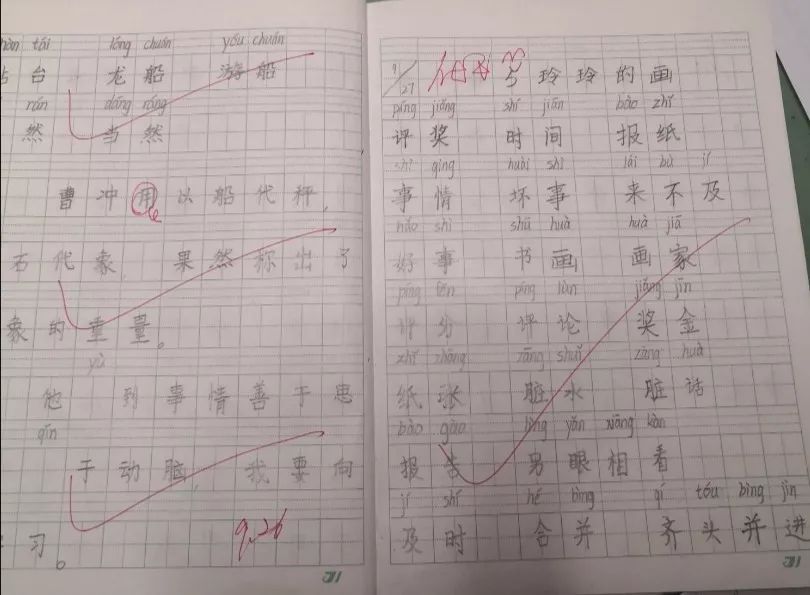 tái lóng chuán yóu chuán
台 龙船 游船
rán dāng ráng
然 当然
曹冲用以船代秤,
石代象,果然称出了
象的重量。
yù
他 到事情善于思
qín
于动脑,我要向
习。
9.26
9/27 5 玲玲的画
píng jiǎng shí jiān bào zhǐ
评奖 时间 报纸
shì qing huài shì lái bù jí
事情 坏事 来不及
hǎo shì shū huà huà jiā
好事 书画 画家
píng fēn píng lùn jiǎng jīn
评分 评论 奖金
zhǐ zhāng zāng shuǐ zāng huà
纸张 脏水 脏话
bào gào lìng yǎn xiāng kàn
报告 另眼相看
jí shí hé bìng qí tóu bìng jìn
及时 合并 齐头并进